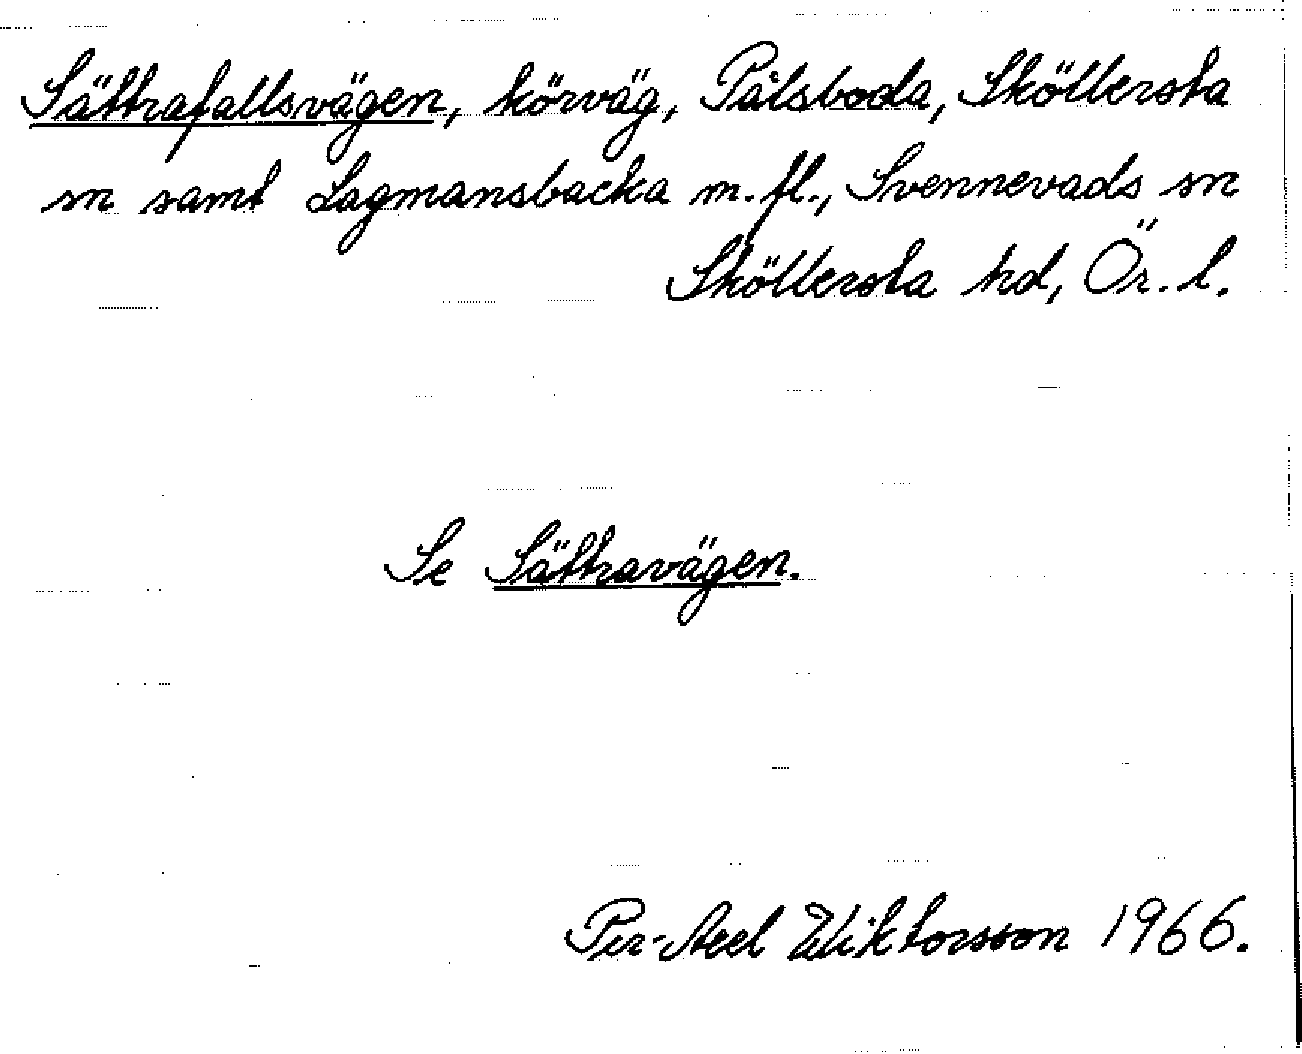 Sättrafallsvägen, körväg, Pålsboda, Sköllersta
sn samt Lagmansbacka m.fl., Svennevads sn
Sköllersta hd, Ör. l.
Se Sättravägen.
Per-Axel Wiktorsson 1966.